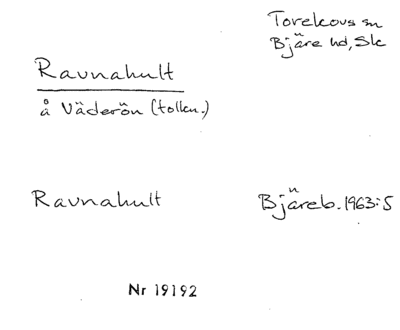 Torekovs sn
Bjäre hd, Sk
Ravnahult
å Väderön (tolkn.)
Ravnahult
Bjäreb. 1963:5
Nr 19192